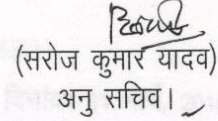 (सरोज कुमार यादव)
अनु सचिव।